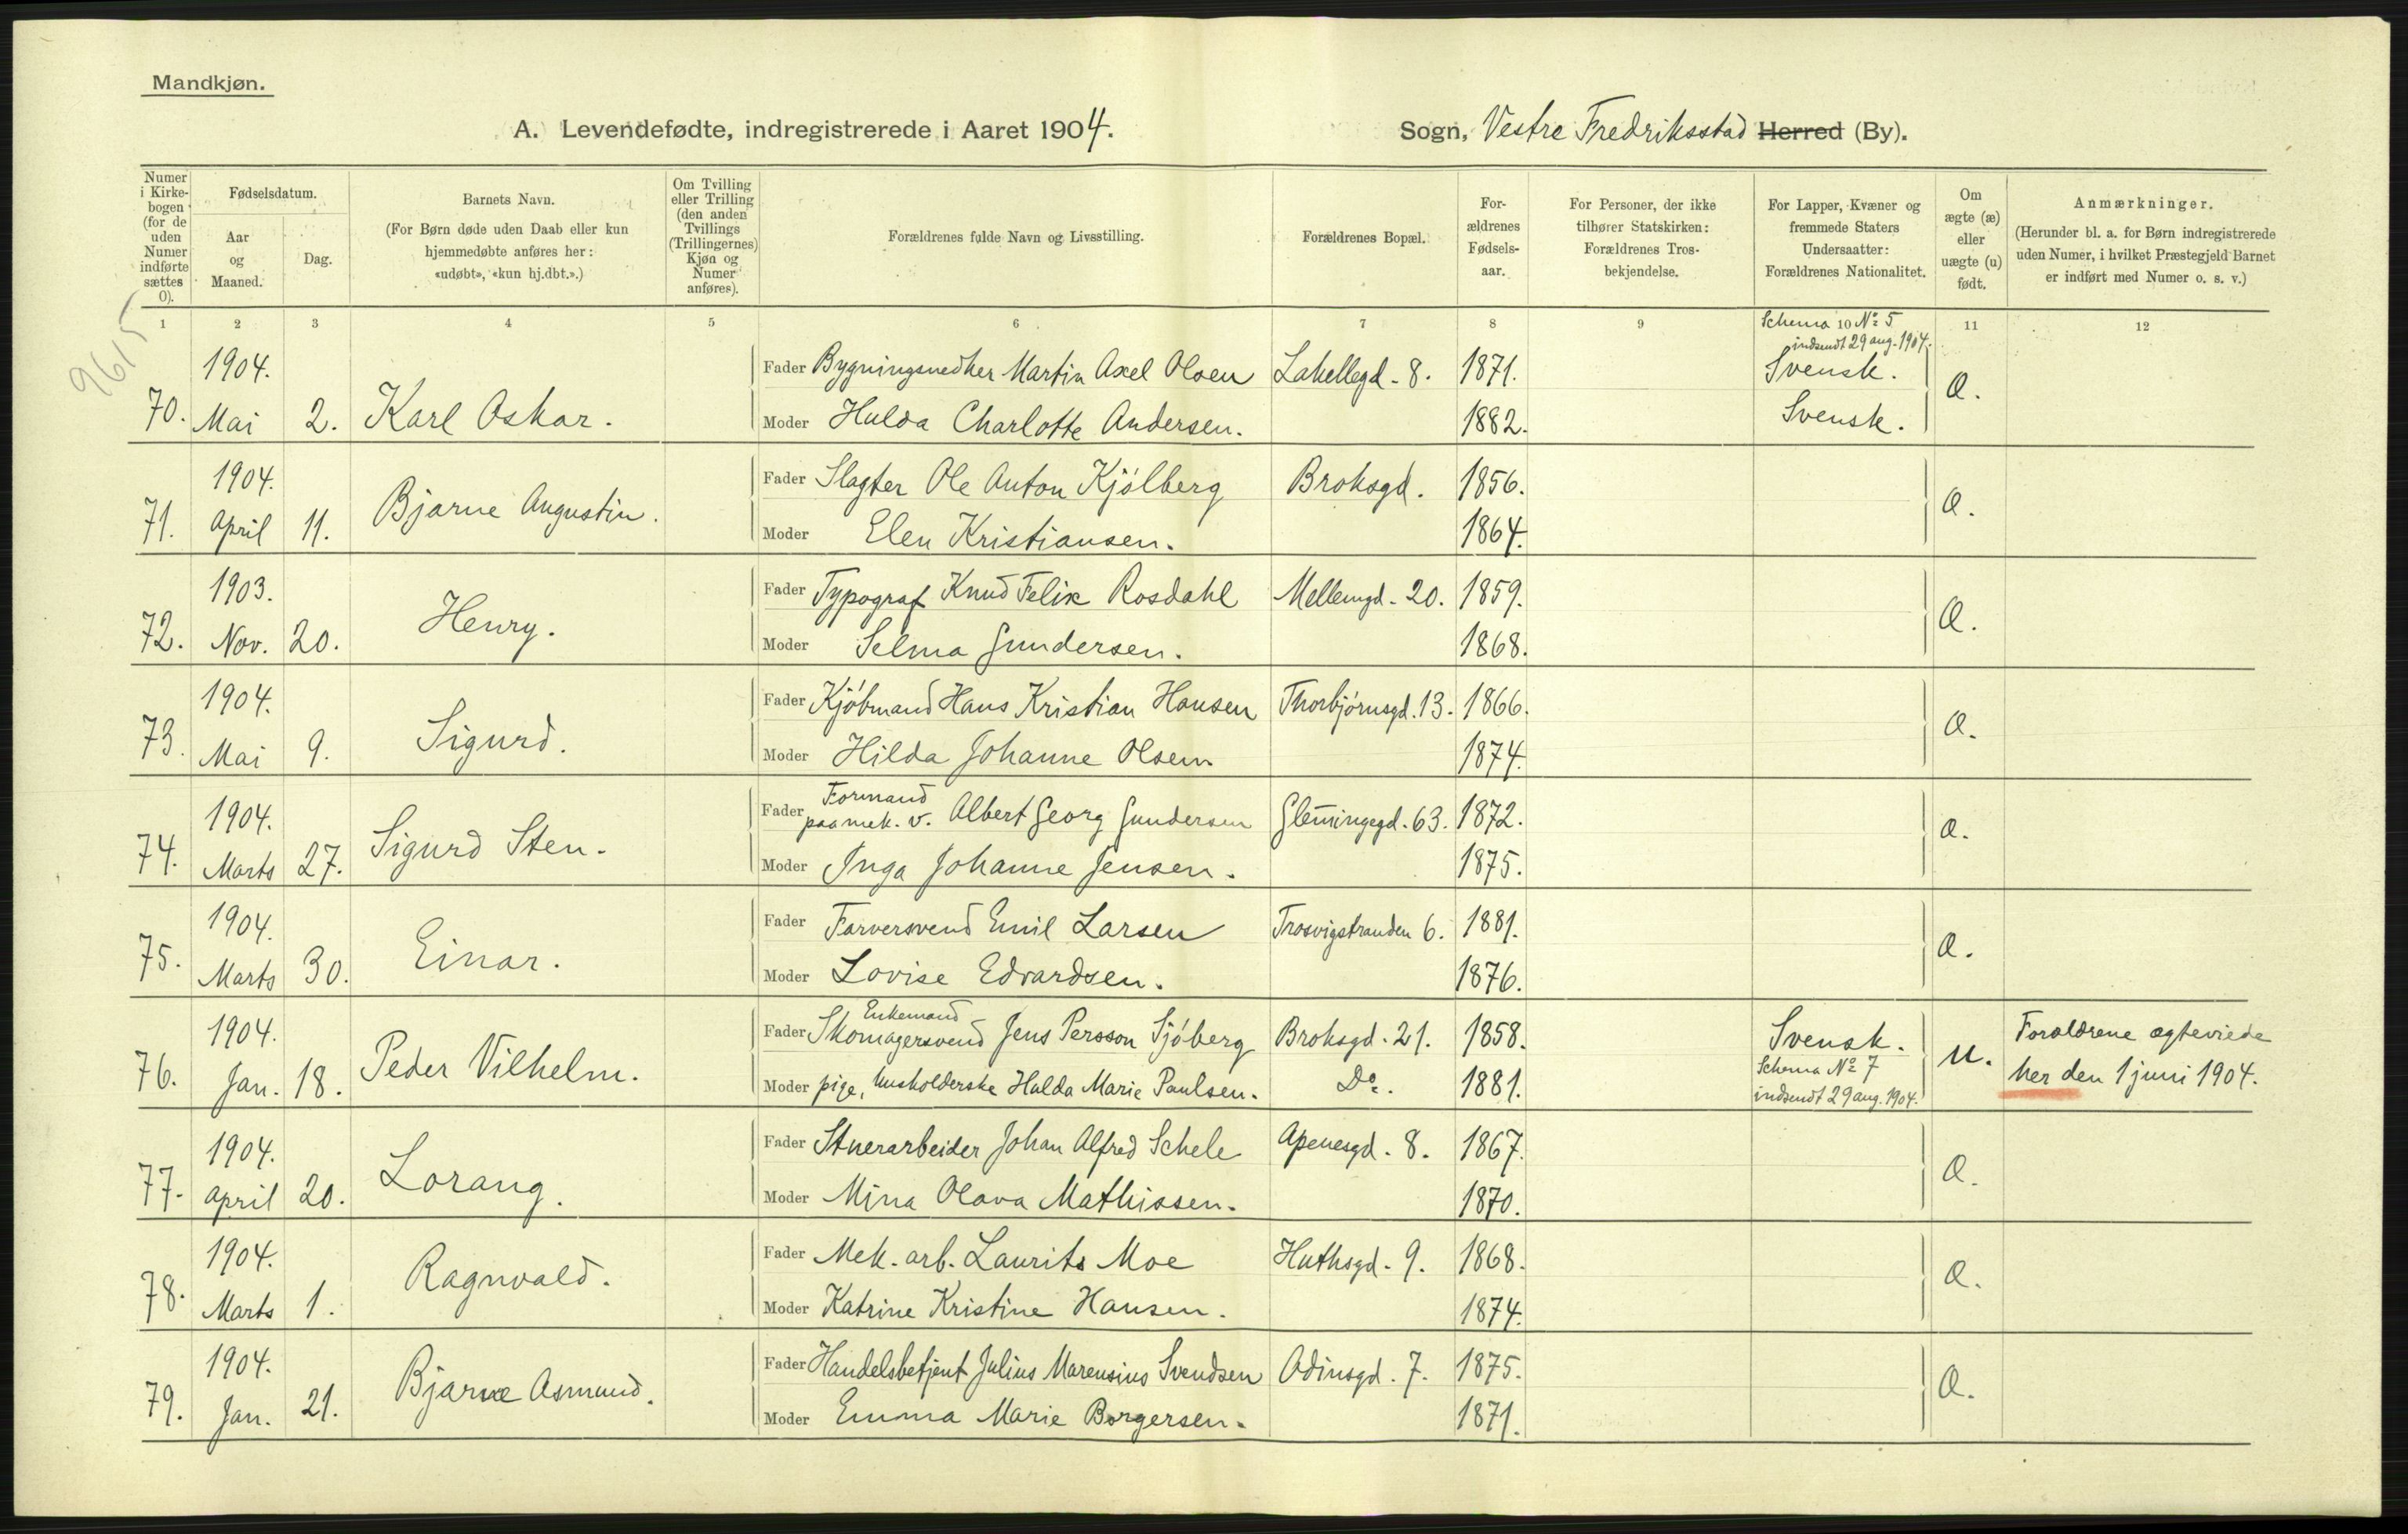 Mandkjøn.
A. Levendefødte, indregistrerede i Aaret 1904. Sogn, Vestre Fredriksstad Herred (By).
Numer i Kirkebogen (for de uden Numer indførte sættes 0).
Fødselsdatum.
Aar og Maaned.
Dag.
Barnets Navn.
(For Børn døde uden Daab eller kun hjemmedøbte anføres her: «udøbt», «kun hj.dbt.».)
Om Tvilling eller Trilling (den anden Tvillings (Trillingernes) Kjøn og Numer anføres).
Forældrenes fulde Navn og Livsstilling.
Forældrenes Bopæl.
Forældrenes Fødselsaar.
For Personer, der ikke tilhører Statskirken: Forældrenes Trosbekjendelse.
For Lapper, Kvæner og fremmede Staters Undersaatter: Forældrenes Nationalitet.
Om ægte (æ) eller uægte (u) født.
Anmærkninger.
(Herunder bl. a. for Børn indregistrerede uden Numer, i hvilket Præstegjeld Barnet er indført med Numer o. s. v.)
1 2 3 4 5 6 7 8 9 10 11 12
9615
Schema No 5
indsendt 29 aug. 1904.
1904. Fader Bygningsnedker Martin Axel Olsen Lahellegd. 8. 1871. Svensk.
70. Mai 2. Karl Oskar. Moder Hulda Charlotte Andersen. 1882. Svensk. Æ.
1904. Fader Slagter Ole Anton Kjölberg Broksgd. 1856.
71. April 11. Bjarne Augustin. Moder Elen Kristiansen. 1864. Æ.
1903. Fader Typograf Knud Felix Rosdahl Mellemgd. 20. 1859.
72. Nov. 20. Henry. Moder Selma Gundersen. 1868. Æ.
1904. Fader Kjöbmand Hans Kristian Hansen Thorbjörnsgd. 13. 1866.
73. Mai 9. Sigurd. Moder Hilda Johanne Olsen 1874. Æ.
Formand
1904. Fader paa mek. v. Albert Georg Gundersen Glem̄ingegd. 63. 1872.
74. Marts 27. Sigurd Sten. Moder Inga Johanne Jensen. 1875. Æ.
1904. Fader Farversvend Emil Larsen Trosvigstranden 6. 1881.
75. Marts 30. Einar. Moder Lovise Edvardsen. 1876. Æ.
Enkemand
1904. Fader Skomagersvend Jens Persson Sjöberg Broksgd. 21. 1858. Svensk. Forældrene ægteviede
76. Jan. 18. Peder Vilhelm. Moder pige, husholderske Hulda Marie Paulsen. Do. 1881. Schema No 7 u. her den 1 juni 1904.
indsendt 29 aug. 1904.
1904. Fader Stuerarbeider Johan Alfred Schele Apenesgd. 8. 1867.
77. April 20. Lorang. Moder Mina Olava Mathissen. 1870. Æ.
1904. Fader Mek. arb. Laurits Moe Huthsgd. 9. 1868.
78. Marts 1. Ragnvald. Moder Katrine Kristine Hansen. 1874. Æ.
1904. Fader Handelsbetjent Julius Marensius Svendsen Odinsgd. 7. 1875.
79. Jan. 21. Bjarne Asmund. Moder Emma Marie Borgersen. 1871. Æ.